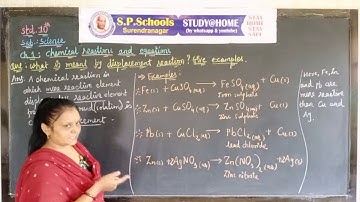 Std. 10th
Sub: Science
S.P.Schools
Surendranagar
STUDY@HOME
(by whatsapp & youtube)
STAY
HOME
STAY
SAFE
Ch 1: chemical reactions and equations
Que: what is meant by displacement reaction? Give examples.
Ans: A chemical reaction in
which more reactive element
element
(solution) is
→ Examples:-
Fe(s) + CuSO4(aq) → FeSO4(aq) + Cu(s)
Iron sulphate
Zn(s) + CuSO4(aq) → ZnSO4(aq) + Cu(s)
Zinc sulphate
Pb(s) + CuCl2(aq) → PbCl2(aq) + Cu(s)
lead chloride
Zn(s) + 2AgNO3(aq) → Zn(NO3)2(aq) + 2Ag(s)
Zinc nitrate
Here, Fe, Zn
and Pb are
more reactive
than Cu and
Ag.